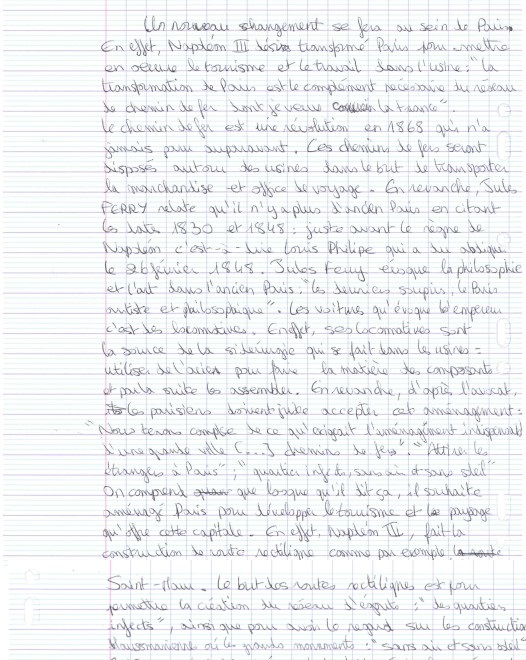 Un nouveau changement se fera au sein de Paris.
En effet, Napoléon III transforme Paris pour mettre
en oeuvre le tourisme et le travail dans l'usine : "la
transformation de Paris est le complément nécessaire du réseau
de chemin de fer dont je veux la France".
Le chemin de fer est une révolution en 1868 qui n'a
jamais paru auparavant. Ces chemins de fers seront
disposés autour des usines dans le but de transporter
la marchandise et office de voyage. En revanche, Jules
FERRY relate qu'il n'y a plus d'ancien Paris en citant
les dates 1830 et 1848 : juste avant le règne de
Napoléon c'est-à-dire Louis Philipe qui a du abdiqué
le février 1848. Jules Ferry évoque la philosophie
et l'art dans l'ancien Paris : "les derniers soupirs, le Paris
artiste et philosophique". Les voitures qu'évoque l'empereur
c'est des locomotives. En effet, ses locomotives sont
la source de la sidérurgie qui se fait dans les usines =
utiliser de l'acier pour faire la matière des composants
et par la suite les assembler. En revanche, d'après l'avocat,
les parisiens doivent juste accepter cet aménagement :
"Nous tenons compte de ce qu'exigeait l'aménagement
d'une grande ville [...] chemins de fers". "Attirer les
étrangers à Paris" ; "quartiers infects, sans air et sans soleil"
On comprend que losque qu'il dit ça, il souhaite
aménagé Paris pour développer le tourisme et le paysage
qu'offre cette capitale. En effet, Napoléon III, fait la
construction de route rectiligne comme par exemple
Saint-Maur. Le but des routes rectilignes est pour
permettre la création du réseau d'égouts : "des quartiers
infects", ainsi que pour avoir le regard sur les constructions
Haussmanienne où les grands monuments : "sans air et sans soleil"